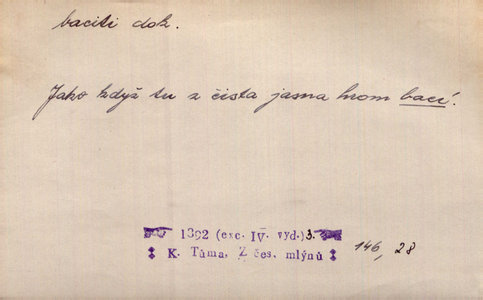 baciti dok.
Jako když tu z čista jasna hrom bací.
1892 (exc. IV. vyd.) 3.
K. Tůma, Z čes. mlýnů 146, 28